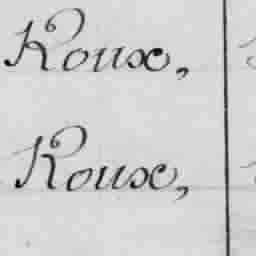 Roux,
Roux,